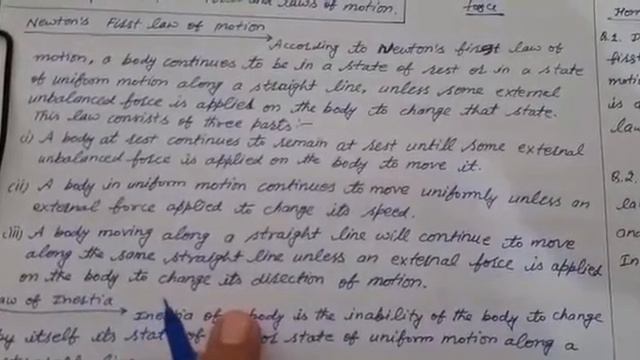 and laws of motion.
force
Newton's First law of motion
According to Newton's first law of
motion, a body continues to be in a state of rest or in a state
of uniform motion along a straight line, unless some external
unbalanced force is applied on the body to change that state.
This law consists of three parts:-
(i) A body at rest continues to remain at rest untill some external
unbalanced force is applied on the body to move it.
(ii) A body in uniform motion continues to move uniformly unless an
external force applied to change its speed.
(iii) A body moving along a straight line will continue to move
along the same straight line unless an external force is applied
on the body to change its direction of motion.
Law of Inertia
Inertia of body is the inability of the body to change
by itself its state of or state of uniform motion along a
Q.1.
first
motion
is
law
Q.2.
la
and